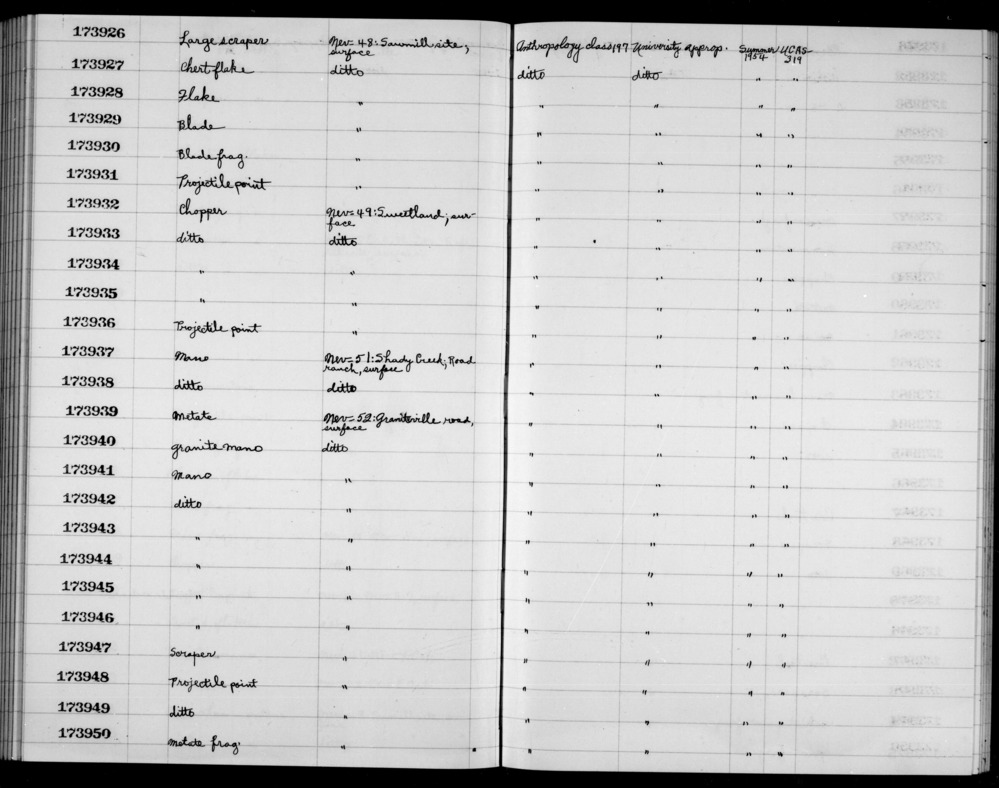 173926 Large scraper Nev-48: Sawmill site, surface Anthropology class 197 University approp. Summer 1954 UCAS-319
173927 Chert flake ditto ditto ditto " "
173928 Flake " " " " "
173929 Blade " " " " "
173930 Blade frag. " " " " "
173931 Projectile point " " " " "
173932 Chopper Nev-49: Sweetland; surface " " " "
173933 ditto ditto " " " "
173934 " " " " " "
173935 " " " " " "
173936 Projectile point " " " " "
173937 Mano Nev-51: Shady Creek; Road ranch, surface " " " "
173938 ditto ditto " " " "
173939 Metate Nev-52: Graniteville road, surface " " " "
173940 granite mano ditto " " " "
173941 Mano " " " " "
173942 ditto " " " " "
173943 " " " " " "
173944 " " " " " "
173945 " " " " " "
173946 " " " " " "
173947 Scraper " " " " "
173948 Projectile point " " " " "
173949 ditto " " " " "
173950 metate frag. " " " " "